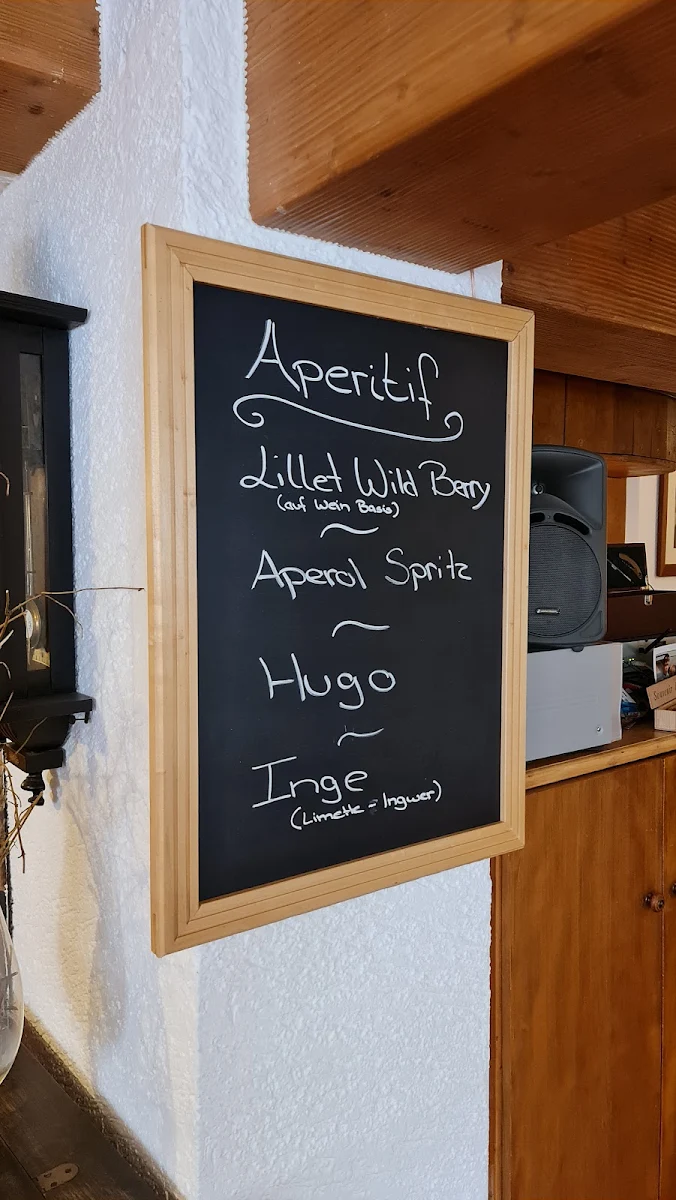 Aperitif
Lillet Wild Berry
(auf Wein Basis)
Aperol Spritz
Hugo
Inge
(Limette - Ingwer)